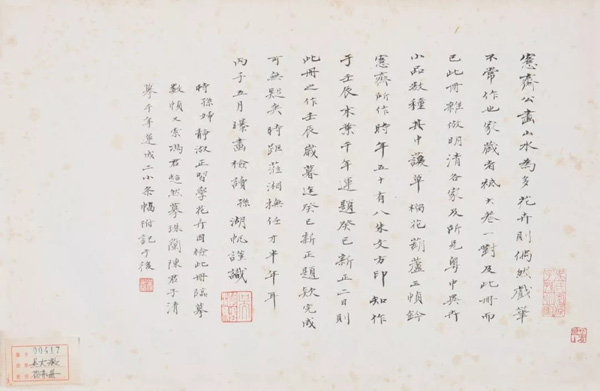 愙齋公畫山水為多花卉則偶然戲筆
不常作也家藏者祗大卷一對及此冊而
已此冊雜倣明清各家及所見粤中異卉
小品數種其中萱草梔花葫蘆三幀鈐
愙齋所作時年五十有八朱文方印知作
于壬辰末葉千年運題癸巳新正二日則
此冊之作壬辰歲暮迄癸巳新正題款完成
可無疑矣時距莅湘撫任才半年耳
丙子五月曝畫檢讀孫湖帆謹識
時孫婦靜淑正習學花卉因檢此冊臨摹
數幀又索馮君超然摹珠蘭陳君子清
摹千年運成二小条幅附記于後
00417
吳大澂